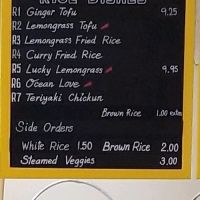 RICE DISHES
R1 Ginger Tofu 9.25
R2 Lemongrass Tofu
R3 Lemongrass Fried Rice
R4 Curry Fried Rice
R5 Lucky Lemongrass 9.95
R6 Ocean Love
R7 Teriyaki Chicken
Brown Rice 1.00 extra
Side Orders
White Rice 1.50 Brown Rice 2.00
Steamed Veggies 3.00